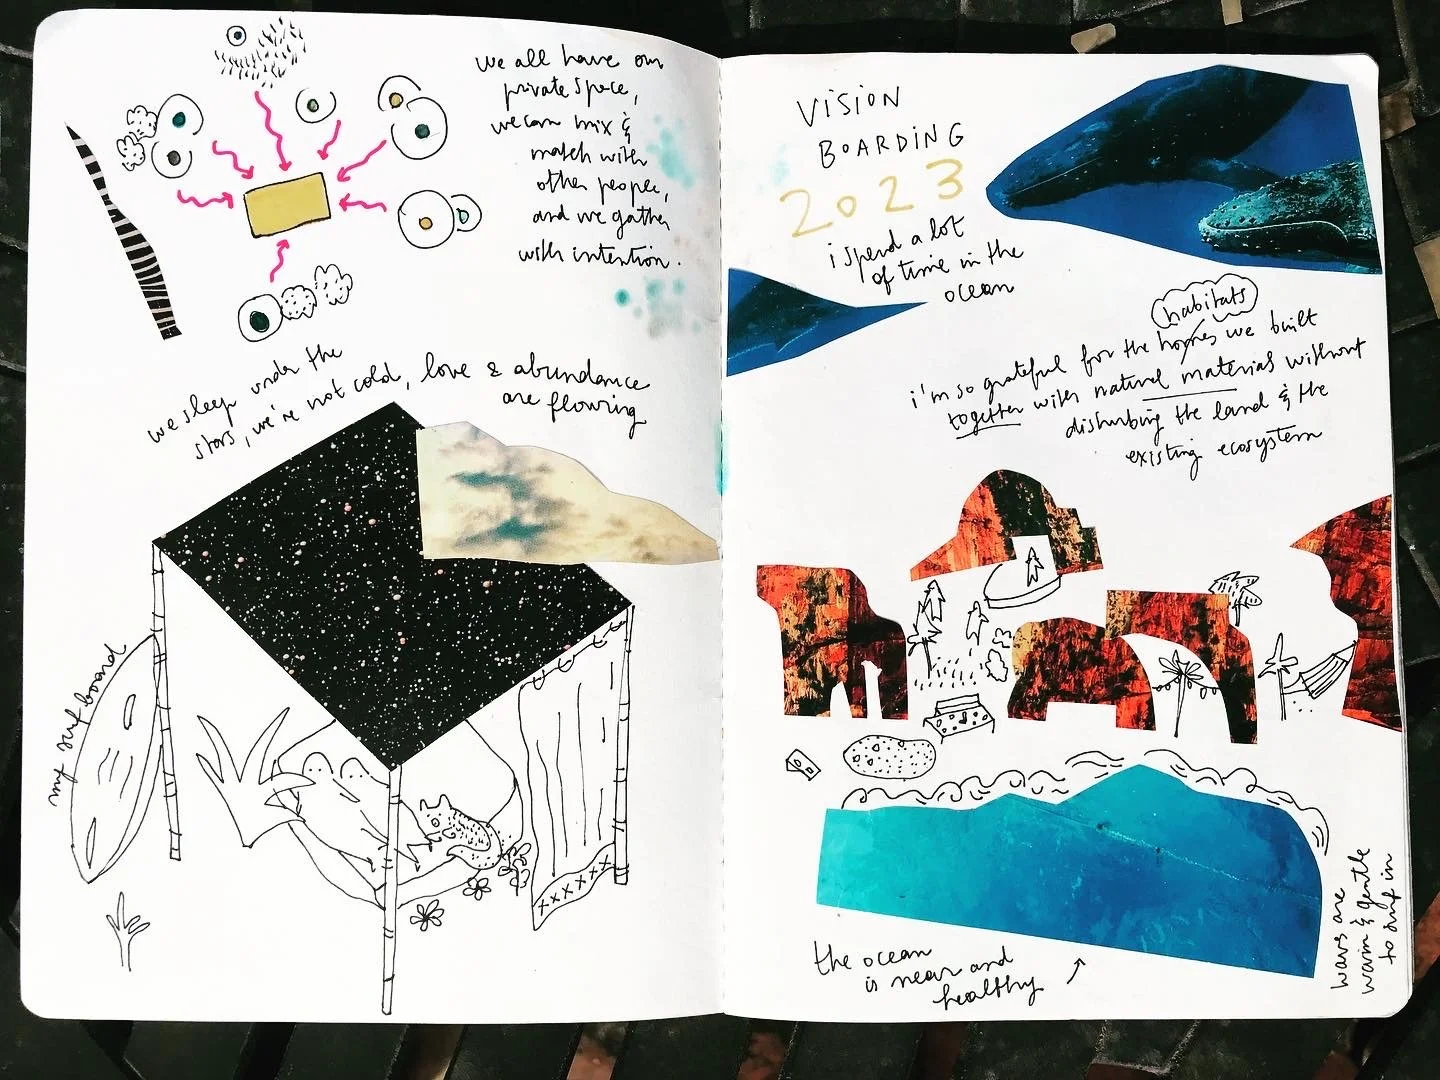 we all have our
private space,
we can mix &
match with
other people,
and we gather
with intention.
we sleep under the
stars, we're not cold, love & abundance
are flowing
my surf board
VISION
BOARDING
2023
i spend a lot
of time in the
ocean
habitats
i'm so grateful for the homes we built
together with natural materials without
disturbing the land & the
existing ecosystem
the ocean
is near and
healthy
wavs are
warm & gentle
to surf in